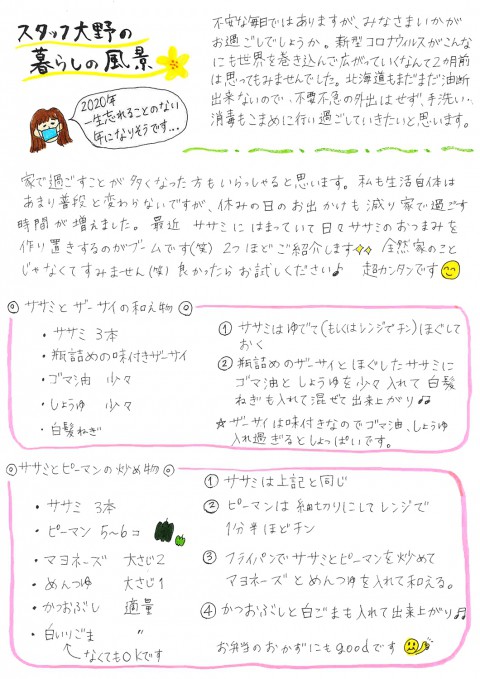 スタッフ大野の
暮らしの風景
2020年
一生忘れることのない
年になりそうです...
不安な毎日ではありますが、みなさまいかが
お過ごしでしょうか。新型コロナウィルスがこんな
にも世界を巻き込んで広がっていくなんて2カ月前
は思ってもみませんでした。北海道もまだまだ油断
出来ないので、不要不急の外出はせず、手洗い、
消毒もこまめに行い過ごしていきたいと思います。
家で過ごすことが多くなった方もいらっしゃると思います。私も生活自体は
あまり普段と変わらないですが、休みの日のお出かけも減り家で過ごす
時間が増えました。最近 ササミにはまっていて日々ササミのおつまみを
作り置きするのがブームです(笑) 2つほどご紹介します 全然家のこと
じゃなくてすみません(笑) 良かったらお試しください♪ 超カンタンです
◎ササミとザーサイの和え物◎
・ササミ 3本
・瓶詰めの味付きザーサイ
・ゴマ油 少々
・しょうゆ 少々
・白髪ねぎ
① ササミはゆでて(もしくはレンジでチン)ほぐして
おく
② 瓶詰めのザーサイとほぐしたササミに
ゴマ油としょうゆを少々入れて白髪
ねぎも入れて混ぜて出来上がり♫
☆ザーサイは味付きなのでゴマ油、しょうゆ
入れ過ぎるとしょっぱいです。
◎ササミとピーマンの炒め物◎
・ササミ 3本
・ピーマン 5~6コ
・マヨネーズ 大さじ2
・めんつゆ 大さじ1
・かつおぶし 適量
・白いりごま 〃
なくてもOKです
① ササミは上記と同じ
② ピーマンは細切りにしてレンジで
1分半ほどチン
③ フライパンでササミとピーマンを炒めて
マヨネーズとめんつゆを入れて和える。
④ かつおぶしと白ごまも入れて出来上がり♫
お弁当のおかずにもgoodです